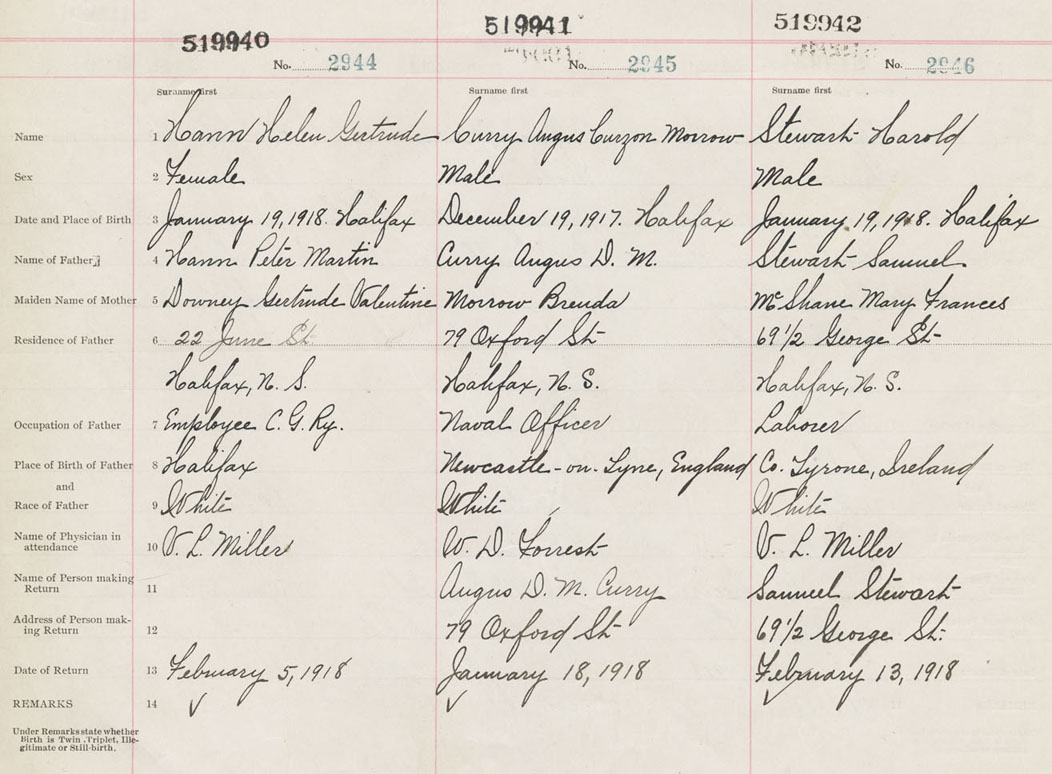 519940 519941 519942
No. 2944 No. 2945 No. 2946
Surname first Surname first Surname first
Name 1 Hann Helen Gertrude Curry Angus Curzon Morrow Stewart Harold
Sex 2 Female Male Male
Date and Place of Birth 3 January 19, 1918. Halifax December 19, 1917. Halifax January 19, 1918. Halifax
Name of Father 4 Hann Peter Martin Curry Angus D. M. Stewart Samuel
Maiden Name of Mother 5 Downey Gertrude Valentine Morrow Brenda McShane Mary Frances
Residence of Father 6 22 June St. 79 Oxford St 69 1/2 George St
Halifax, N. S. Halifax, N. S. Halifax, N. S.
Occupation of Father 7 Employee C. G. Ry. Naval Officer Laborer
Place of Birth of Father 8 Halifax Newcastle-on-Tyne, England Co. Tyrone, Ireland
and
Race of Father 9 White White White
Name of Physician in
attendance 10 V. L. Miller W. D. Forrest V. L. Miller
Name of Person making
Return 11 Angus D. M. Curry Samuel Stewart
Address of Person mak-
ing Return 12 79 Oxford St 69 1/2 George St.
Date of Return 13 February 5, 1918 January 18, 1918 February 13, 1918
REMARKS 14
Under Remarks state whether
Birth is Twin, Triplet, Ille-
gitimate or Still-birth.